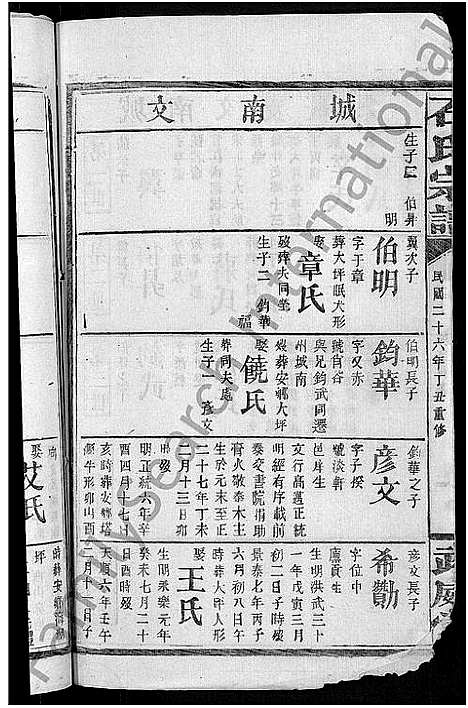 石氏宗譜
民國二十六年丁丑重修
武威
城南文
生子二 伯昇
明
翼次子
伯明
字于章
葬大坪眠犬形
娶章氏
歿葬夫同塋
生子二 鈞華
福
伯明長子
鈞華
字又亦
號自谷
與兄鈞武同遷
州城南
歿葬安鄉大坪
娶饒氏
葬同夫處
生子一 彥文
鈞華之子
彥文
字子授
號淡軒
邑庠生
文行高邁正統
明經有序載前
泰交書院捐助
膏火敬奉木主
生於元末至正
二十七年丁未
八月十三日卯
時歿
明正統六年辛
酉四月十七日
亥時葬安鄉塔
源牛形卯山酉
向
娶艾氏
彥文長子
希勸
字位中
廩貢生
生明洪武三十
一年戊寅三月
初二日子時歿
景泰七年丙子
六月初八日午
時葬大坪人形
娶王氏
生明永樂元年
癸未七月二十
日酉時歿
天順六年壬午
二月十一日子
時葬安鄉
坪
FamilySearch International